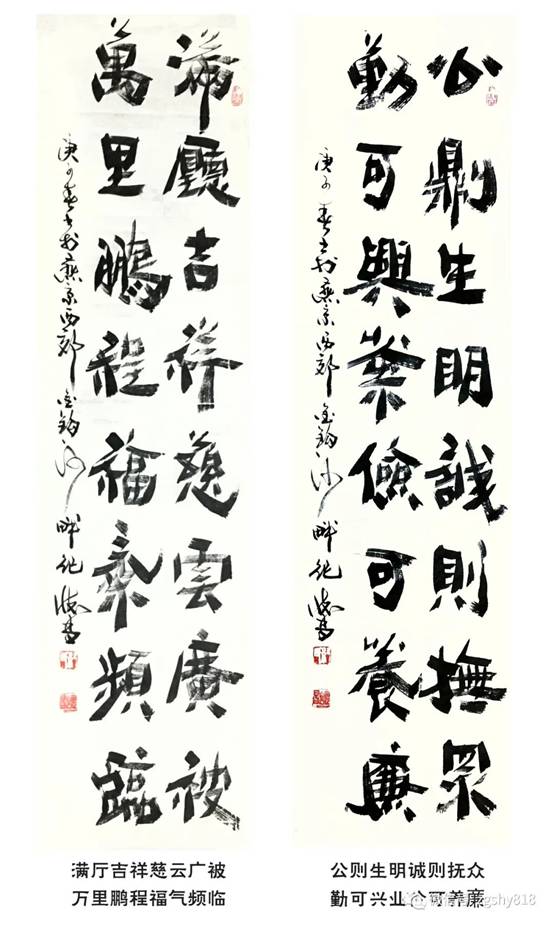 滿廳吉祥慈雲廣被
萬里鵬程福氣頻臨
庚子春书於燕京西郊金鉤河畔
公則生明誠則撫眾
勤可興業儉可養廉
庚子春书於燕京西郊金鉤河畔
满厅吉祥慈云广被
万里鹏程福气频临
公则生明诚则抚众
勤可兴业俭可养廉
微信号: zgshy818